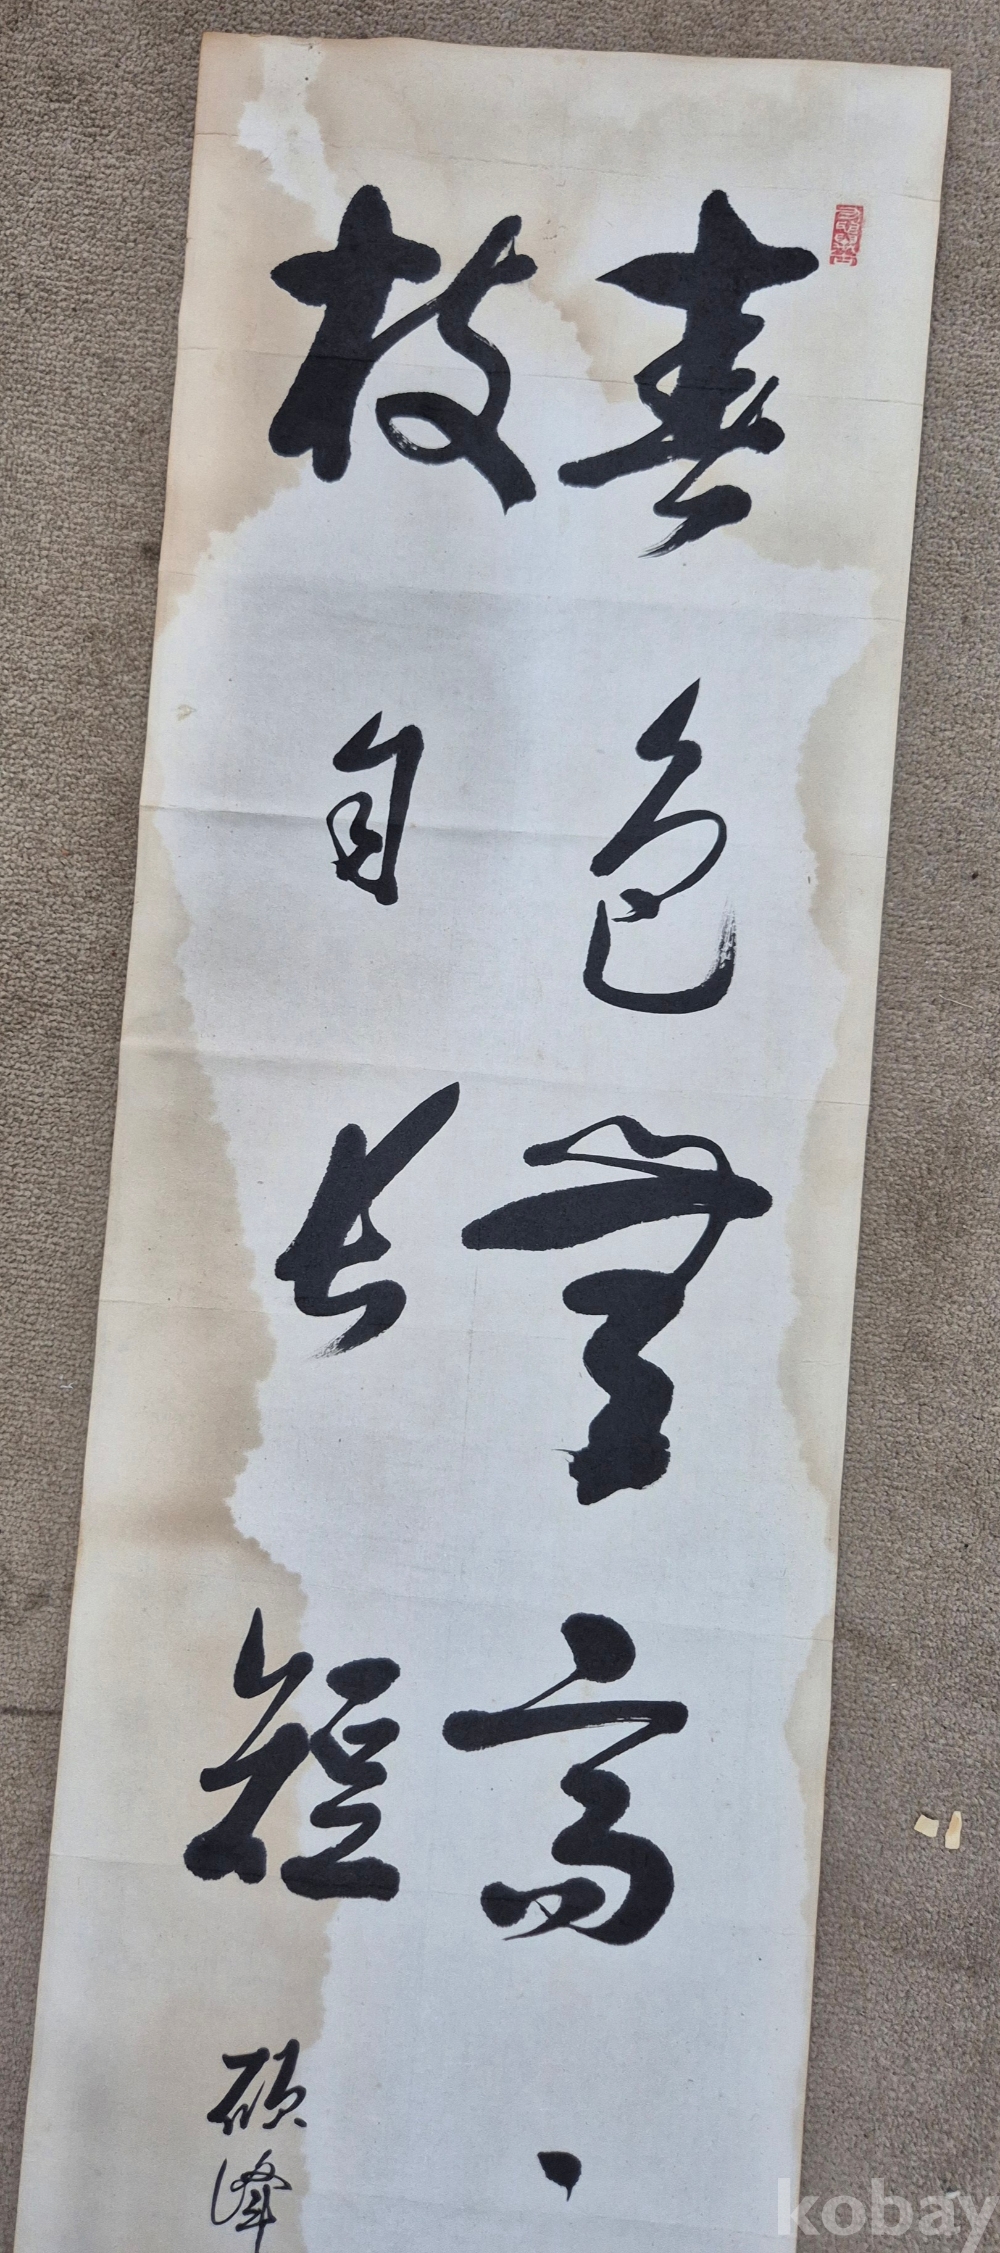 春色無高
枝自長短
碩峰
kobay